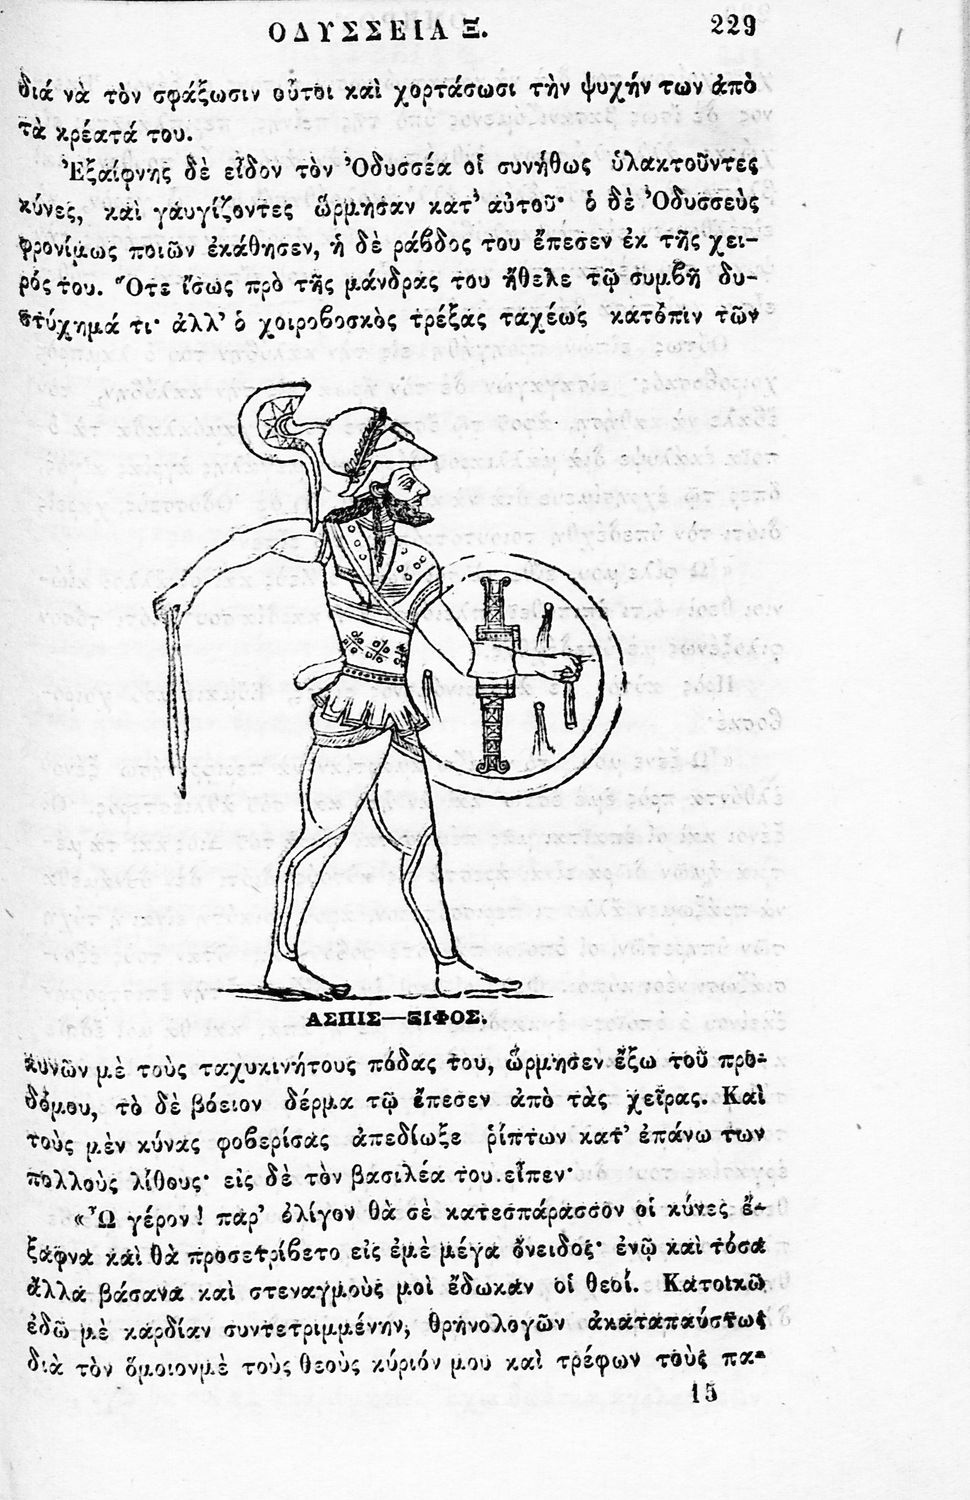 ΟΔΥΣΣΕΙΑ Ξ. 229
διά νὰ τὸν σφάξωσιν οὗτοι καὶ χορτάσωσι τὴν ψυχήν των ἀπὸ
τὰ κρέατά του.
Ἐξαίφνης δὲ εἶδον τὸν Ὀδυσσέα οἱ συνήθως ὑλακτοῦντες
κύνες, καὶ γαυγίζοντες ὥρμησαν κατ' αὐτοῦ· ὁ δὲ Ὀδυσσεὺς
φρονίμως ποιῶν ἐκάθησεν, ἡ δὲ ράβδος του ἔπεσεν ἐκ τῆς χει-
ρός του. Ὅτε ἴσως πρὸ τῆς μάνδρας του ἤθελε τῷ συμβῆ δυ-
στύχημά τι· ἀλλ' ὁ χοιροβοσκὸς τρέξας ταχέως κατόπιν τῶν
ΑΣΠΙΣ—ΞΙΦΟΣ.
κυνῶν μὲ τοὺς ταχυκινήτους πόδας του, ὥρμησεν ἔξω τοῦ προ-
δόμου, τὸ δὲ βόειον δέρμα τῷ ἔπεσεν ἀπὸ τὰς χεῖρας. Καὶ
τοὺς μὲν κύνας φοβερίσας ἀπεδίωξε ῥίπτων κατ' ἐπάνω των
πολλοὺς λίθους· εἰς δὲ τὸν βασιλέα του εἶπεν·
«Ὦ γέρον! παρ' ὀλίγον θὰ σὲ κατεσπάρασσον οἱ κύνες ἔ-
ξαφνα καὶ θὰ προσετρίβετο εἰς ἐμὲ μέγα ὄνειδος· ἐνῷ καὶ τόσα
ἄλλα βάσανα καὶ στεναγμοὺς μοὶ ἔδωκαν οἱ θεοί. Κατοικῶ
ἐδῶ μὲ καρδίαν συντετριμμένην, θρηνολογῶν ἀκαταπαύστως
διὰ τὸν ὅμοιονμὲ τοὺς θεοὺς κύριόν μου καὶ τρέφων τοὺς πα-
15